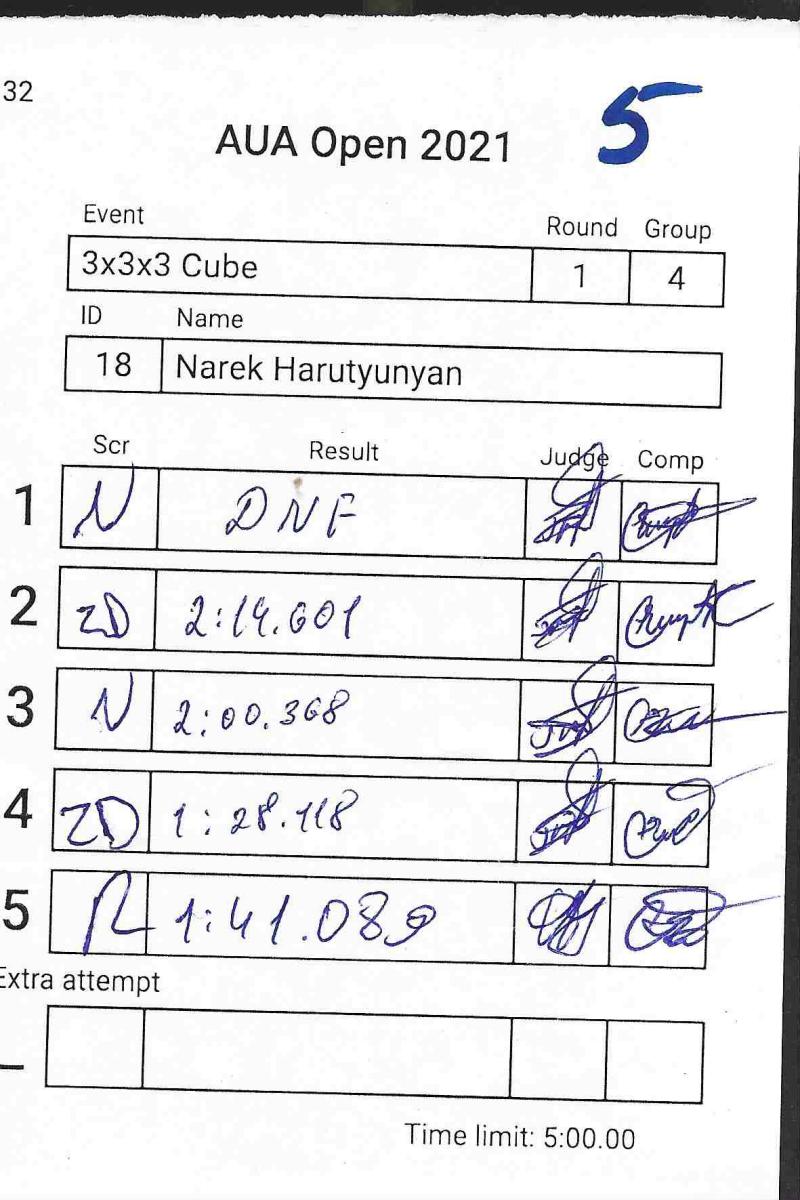 32
5
AUA Open 2021
Event Round Group
3x3x3 Cube 1 4
ID Name
18 Narek Harutyunyan
Scr Result Judge Comp
1 N DNF
2 ZD 2:14.601
3 N 2:00.368
4 ZD 1:28.118
5 1:41.089
Extra attempt
_
Time limit: 5:00.00